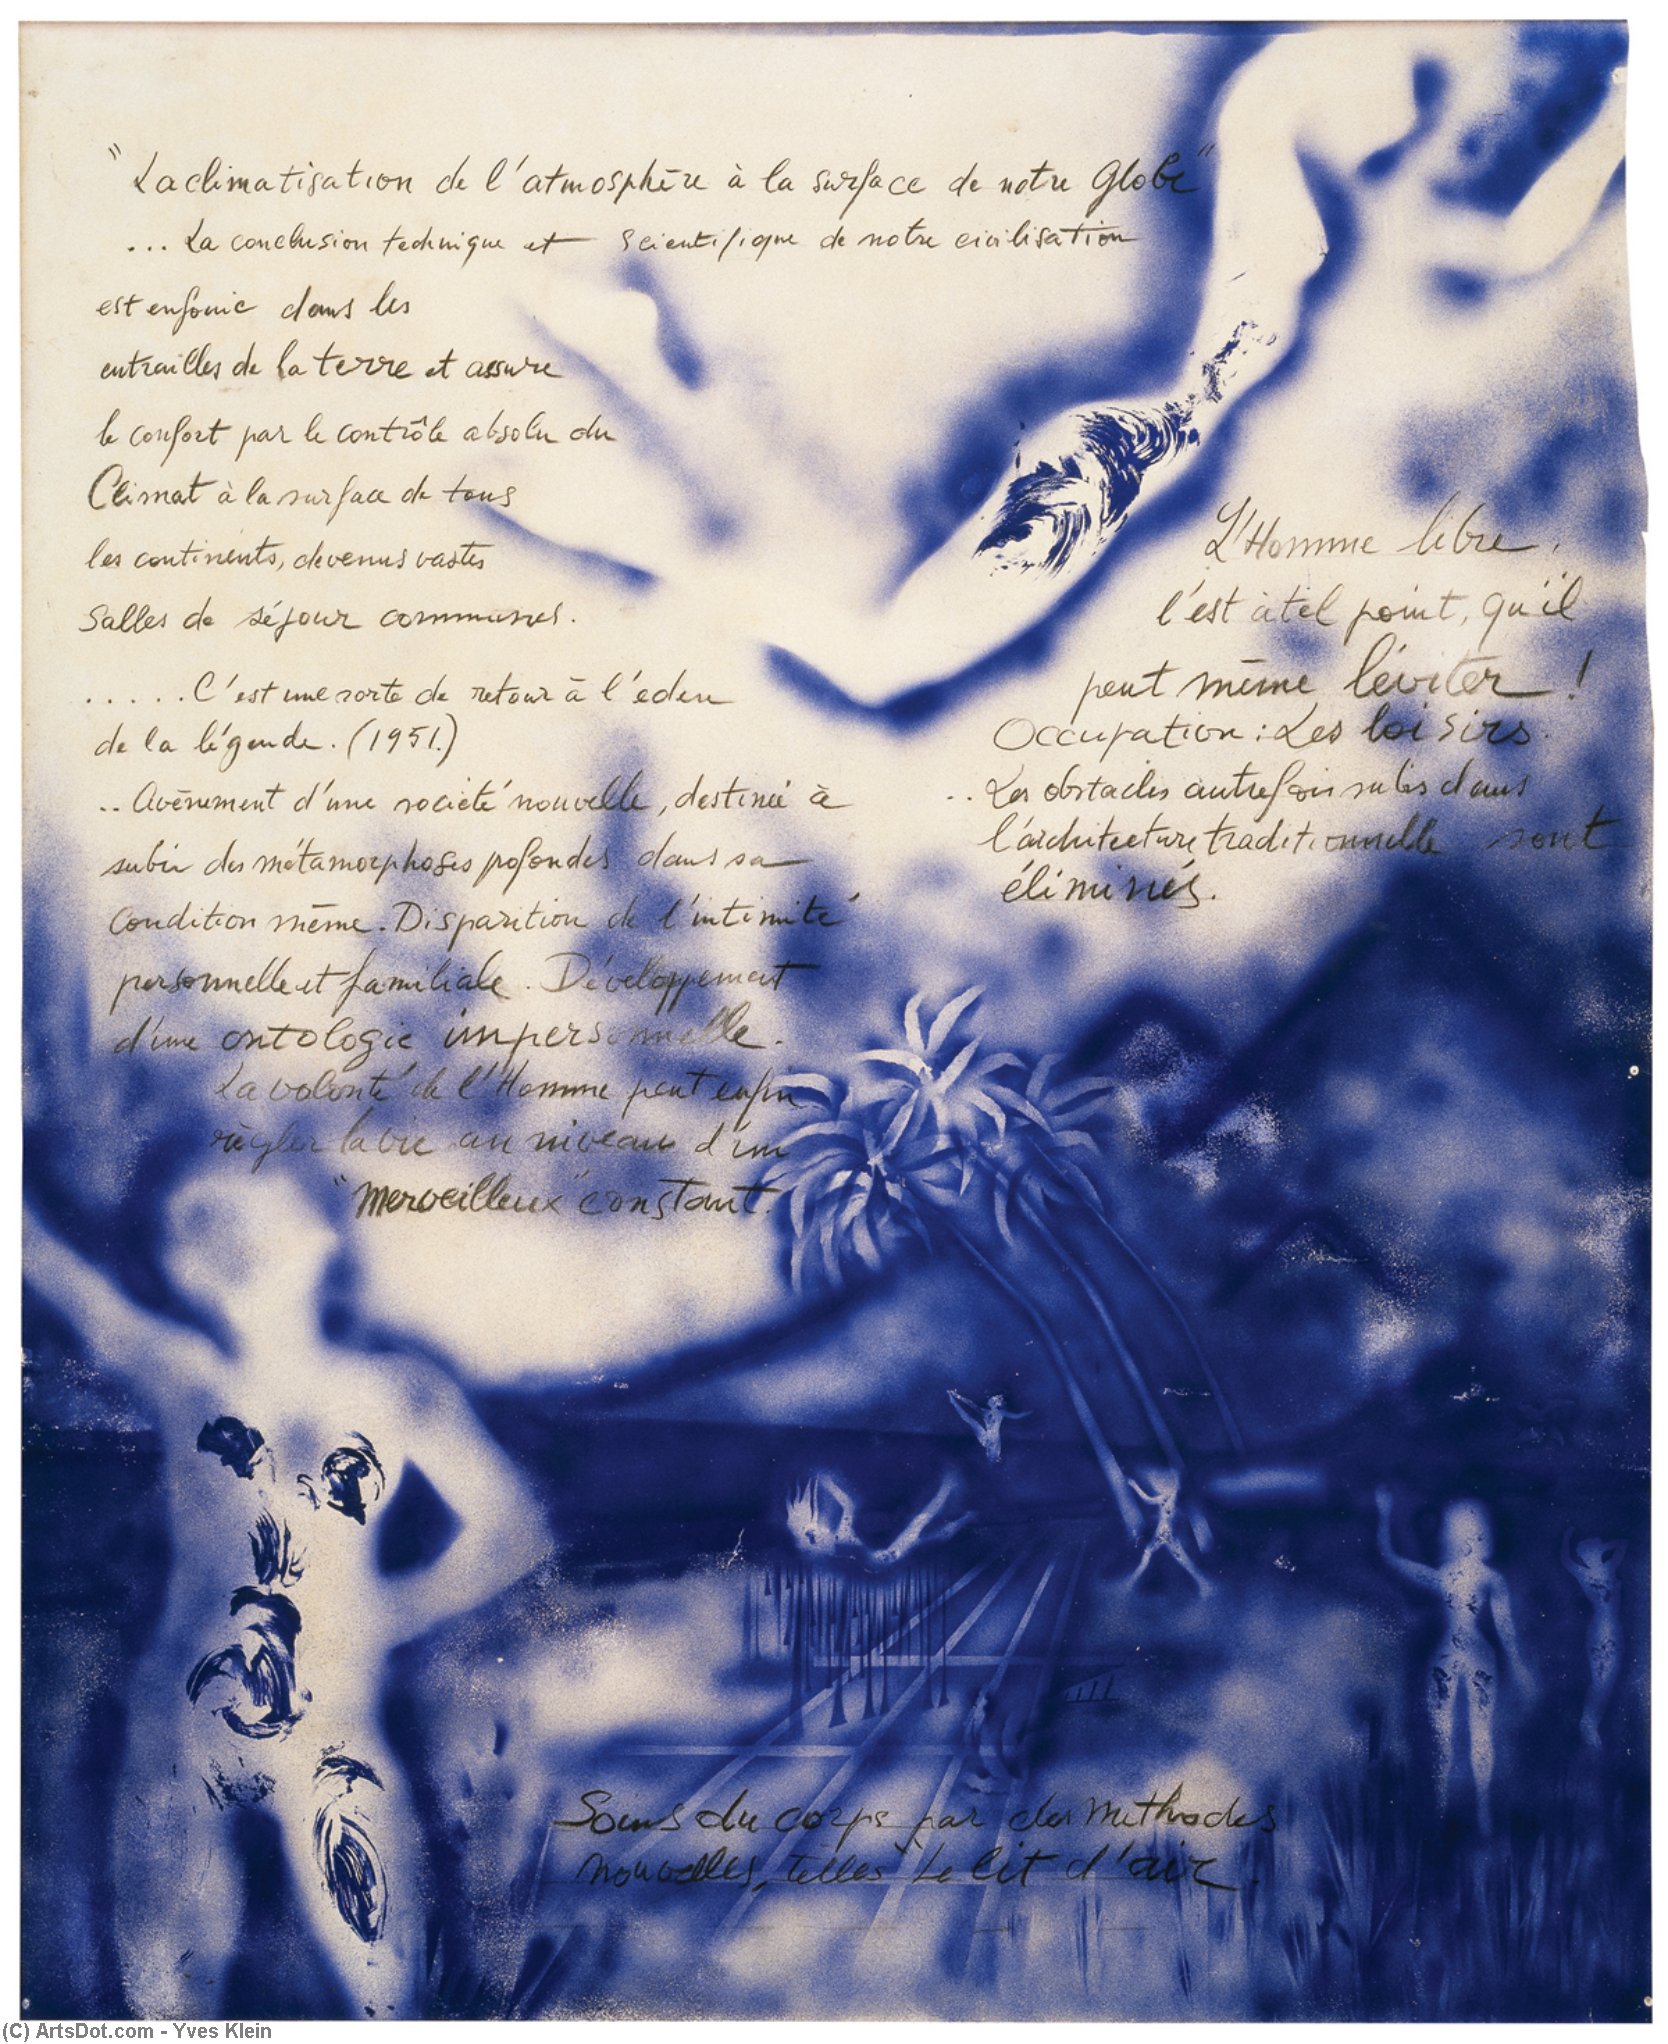 "La climatisation de l'atmosphère à la surface de notre Globe"
... La conclusion technique et scientifique de notre civilisation
est enfouie dans les
entrailles de la terre et assure
le confort par le contrôle absolu du
Climat à la surface de tous
les continents, devenus vastes
Salles de séjour communes.
.....C'est une sorte de retour à l'éden
de la légende. (1951.)
.. Avènement d'une société nouvelle, destinée à
subir des métamorphoses profondes dans sa
condition même. Disparition de l'intimité
personnelle et familiale. Développement
d'une ontologie impersonnelle.
La volonté de l'Homme peut enfin
règler la vie au niveau d'un
"Merveilleux" constant.
L'Homme libre,
l'est à tel point, qu'il
peut même léviter !
Occupation : Les loisirs.
.. Les obstacles autrefois subis dans
l'architecture traditionnelle sont
éliminés.
Soins du corps par des Méthodes
nouvelles, telles "Le lit d'air".
(C) ArtsDot.com - Yves Klein